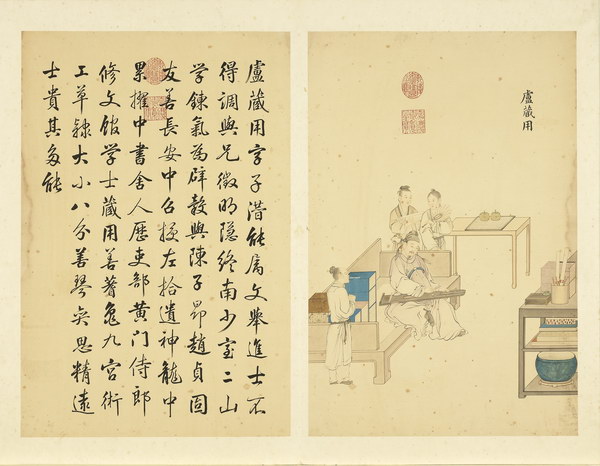 盧藏用
盧藏用字子潛能屬文舉進士不
得調與兄徵明隱終南少室二山
学鍊氣為辟穀與陳子昂趙貞固
友善長安中召授左拾遺神龍中
累擢中書舍人歷吏部黄门侍郎
修文馆学士藏用善蓍龜九宫術
工草隸大小八分善琴奕思精遠
士貴其多能